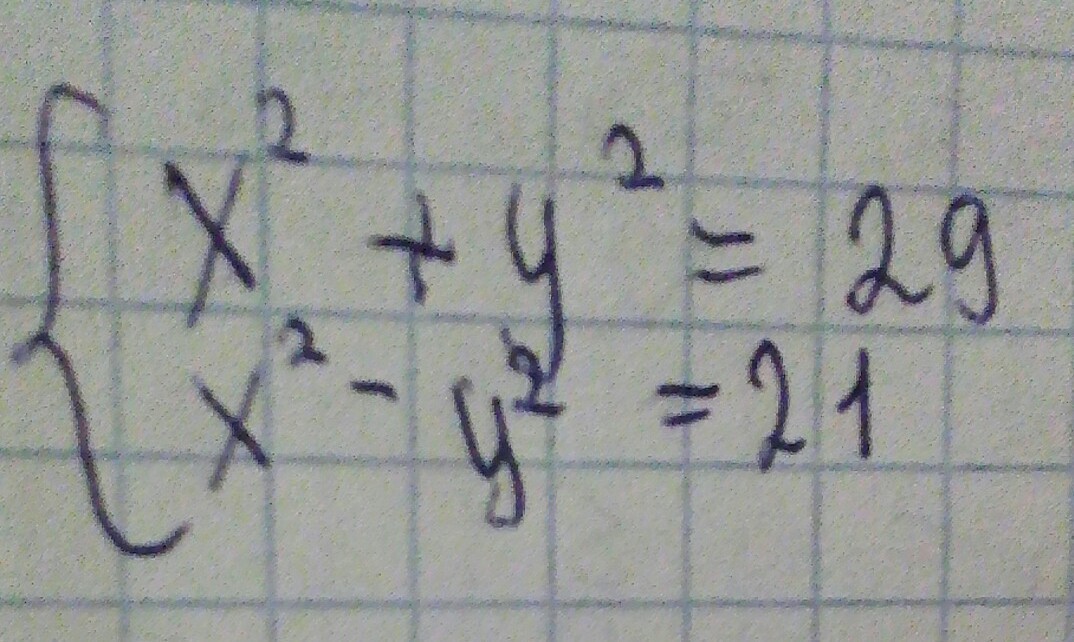 x² + y² = 29
x² - y² = 21